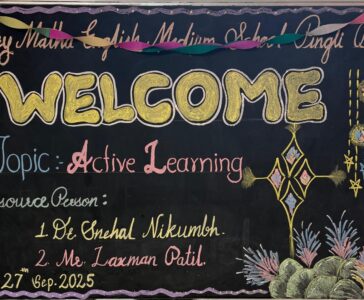 Matha English Medium School Pingli
WELCOME
Topic :- Active Learning
Resource Person :
1. Dr. Snehal Nikumbh.
2. Mr. Laxman Patil.
27th Sep. 2025